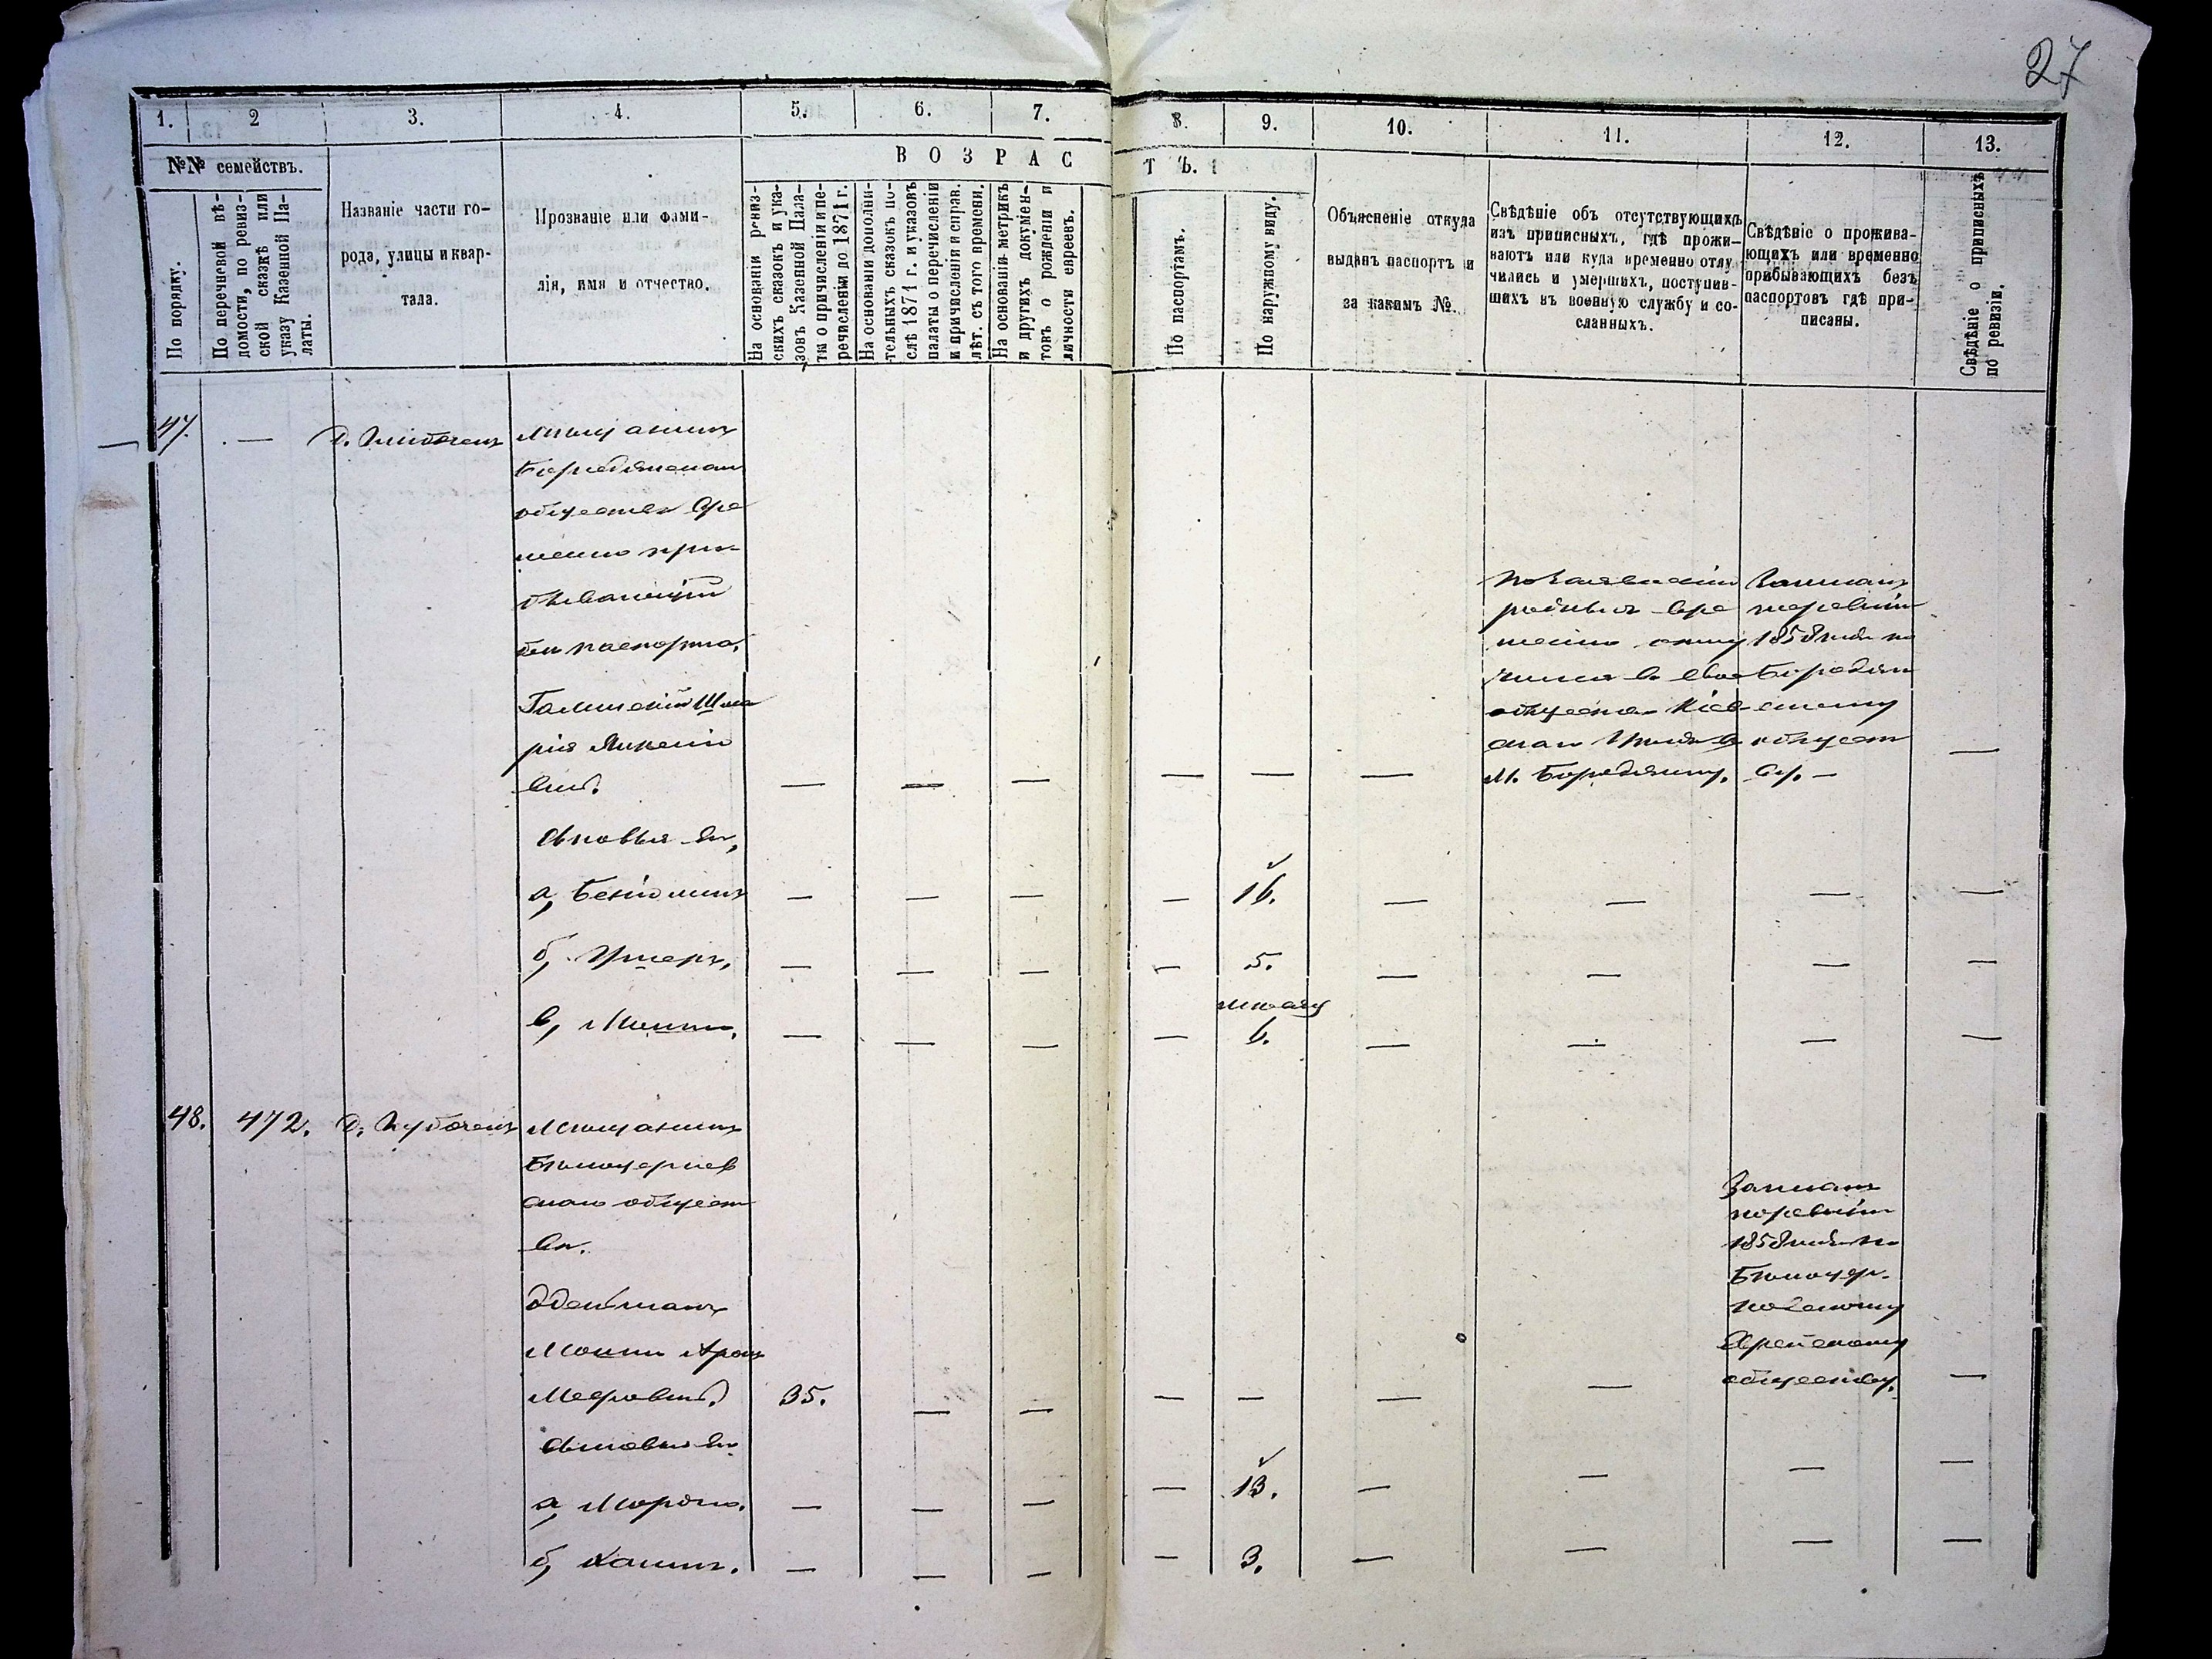 27
1. 2 3. 4. 5. 6. 7. 8. 9. 10. 11. 12. 13.
№№ семействъ.
ВОЗРАСТЪ.
По порядку.
По перечневой вѣ-
домости, по ревиз-
ской сказкѣ или
указу Казенной Па-
латы.
Названіе части го-
рода, улицы и квар-
тала.
Прозваніе или фами-
лія, имя и отчество.
На основаніи ревиз-
скихъ сказокъ и ука-
зовъ Казенной Пала-
ты о причисленіи и пе-
речисленіи до 1871 г.
На основаніи дополни-
тельныхъ сказокъ по-
слѣ 1871 г. и указовъ
палаты о перечисленіи
и причисленіи и справ.
лѣт. съ того времени.
На основаніи метрикъ
и другихъ докумен-
товъ о рожденіи и
личности евреевъ.
По паспортамъ.
По наружному виду.
Объясненіе откуда
выданъ паспортъ и
за какимъ №.
Свѣдѣніе объ отсутствующихъ
изъ приписныхъ, гдѣ прожи-
ваютъ или куда временно отлу
чились и умершихъ, поступив-
шихъ въ военную службу и со-
сланныхъ.
Свѣдѣніе о прожива-
ющихъ или временно
прибывающихъ безъ
паспортовъ гдѣ при-
писаны.
Свѣдѣніе о приписныхъ
по ревизіи.
47. — Мѣщанинъ
Бородянскаго
общества Вре
менно при-
бывающій
безъ паспорта.
Галинскій Шма
рія Янкеліо
вичъ. — — — — — —
По Заявленію
родныхъ вре
менно отлу
чился въ свое
общество Кіев
скаго Уѣзда въ
М. Бородянку.
Записанъ
по ревизіи
1858 года по
Бородян
скому
общест
ву. —
—
Сыновья его,
а, Беніоминъ — — — — 16. — — — —
б, Ушеръ, — — — — 5. — — — —
в, Мошко. — — — — мѣсяц
6. — — — —
48. 472. Мѣщанинъ
Бѣлоцерков
скаго общест
ва.
Мошко Арон
Мееровичъ 35. — — — — — —
Записанъ
по ревизіи
1858 года по
Бѣлоцер-
ковскому
Еврейскому
обществу.
—
Сыновья его
а, Мордко. — — — — 13. — — — —
б, Хаимъ. — — — — 3. — — — —